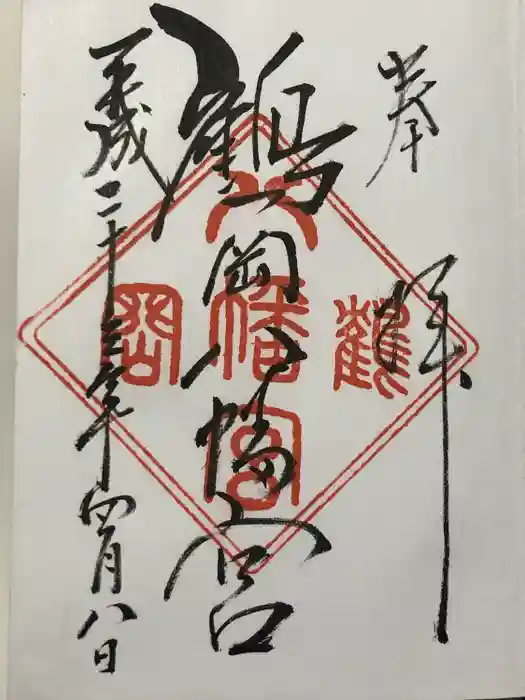 奉拝
鶴岡八幡宮
平成二十三年四月八日
鶴
八幡宮
岡